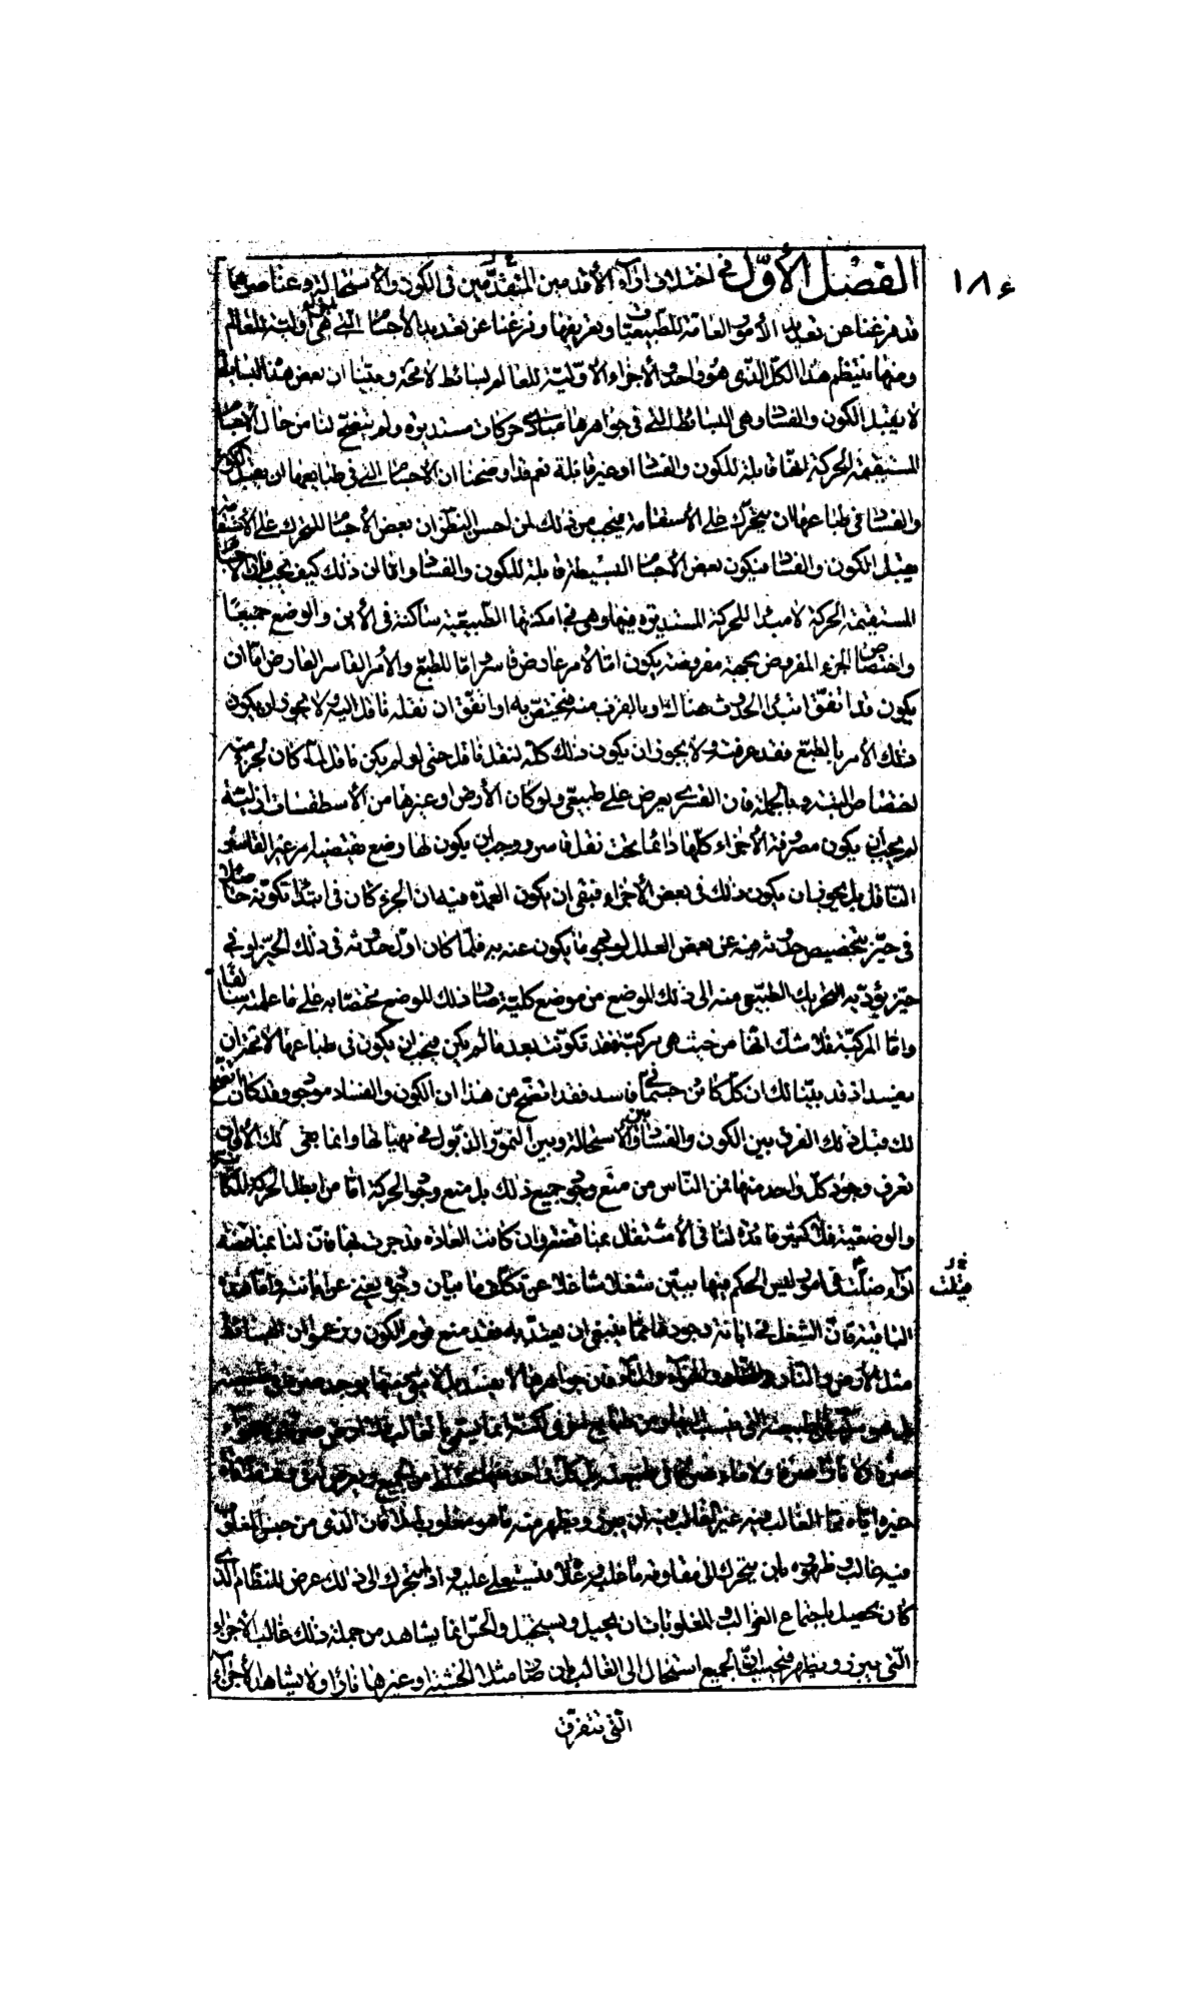 ١٨٤
الفصل الأوّل في اختلاف اراء الأقدمين المتقدّمين في الكون والأستحالة وعناصرهما
قد فرغنا عن تعديد الأمور العامة للطبيعيّات وتعريفها وفرغنا عن تعديد الأجسام التي هي اولية للعالم
ومنها ينتظم هذا الكل الذي هو واحد والأجزاء الاوّلية للعالم بسائط لا محة وبيّنا ان بعض هذه البسائط
لا يقبل الكون والفساد وهى البسائط التي في جواهرها مبادى حركات مستديرة ولم يتضح لنا من حال الأجسام
المستقيمة الحركة انها قابلة للكون والفساد او غير قابلة نعم قد اوضحنا ان الاجسام التي في طبايعها ان يقبل الكون
والفساد في طباعها ان يتحرك على الأستقامة فيجب من ذلك لمن احسن النظر ان بعض الأجسام المتحرك على الأستقامة
يقبل الكون والفساد فيكون بعض الأجسام البسيطة قابلة للكون والفساد واما ان ذلك كيف يجب فلان الأجسام
المستقيمة الحركة لا مبدأ للحركة المستديرة فيها وهي في امكنتها الطّبيعيّة ساكنة في الأين والوضع جميعا
واختصاص الجزء المفروض بجهة مفروضة يكون اما لأمر عارض قاسر واما للطبع والأمر القاسر العارض اما ان
يكون قد اتفق ابتداء الحدوث هناك او بالقرب منه فيختص به او اتفق ان نقله ناقل اليه ولا يجوز ان يكون
ذلك الأمر بالطبع فقد عرفته ولا يجوز ان يكون ذلك كله لنقل ناقل حتى لو لم يكن ناقل لما كان لجزء منه
اختصاص البتة وبالجملة فان القسرى يعرض على طبيعى ولو كان الأرض او غيرها من الأسطقسات ازلية
لم يجب ان يكون مصروفة الأجزاء كلها دائما تحت نقل قاسر ووجب ان يكون لها وضع يقتضيه امر غير القاسر
الناقل بل يجوز ان يكون ذلك في بعض الأجزاء فبقى ان يكون العمدة فيه ان الجزء كان في ابتداء تكوّنه حاصلا
في حيّز يتخصيص حدوثه فيه عن بعض العلل لوجود ما يكون عنه به فلمّا كان اوّل حدوثه في ذلك الحيّز او في
حيّز يؤدّيه التحريك الطبيعى منه الى ذلك الموضع من موضع كليته صار ذلك الموضع مختصا به على ما علمته سالفا
واما المركبة فلا شك انها من حيث هى مركبة فقد تكوّنت بعد ما لم يكن فيجب ان يكون في طباعها لا محة ان
يفسد اذ قد بيّنا لك ان كل كائن جسمانى فاسد فقد اتضح من هذا ان الكون والفساد موجود وقد كان اتضح
لك قبل ذلك الفرق بين الكون والفساد وبين الاستحالة وبين النموّ والذبول في مهياتها وانما بقى لك الأن ان
تعرف وجود كل واحد منها فمن النّاس من منع وجود جميع ذلك بل منع وجود الحركة امّا من ابطل الحركة المكانية
والوضعية فلا كثير فائدة لنا في الأشتغال بمناقضته وان كانت العادة قد جرت بها فان لنا بمناقضة
اراء ضلّت في امور ليس الحكم فيها ببيّن شغلا شاغلا عن تكلّف ما بيان وجوده يغنى عن ابانته وامّا هذه
قيلت
الباقية فان الشغل في ابانة وجودها ممّا ينبغي ان يعتد به فقد منع قوم الكون وزعموا ان البسائط
مثل الأرض والنار والهواء والماء فان جواهرها لا يفسد بل لا شئ منها يوجد صرفا في طبيعته
بل هو مركب من الطبيعة التي ينسب اليها ومن طبايع اخرى لكنه انما يسمّى بالغالب فلا ارض صرفة ولا هواء
صرفا ولا نار صرفا ولا ماء صرفا في طبيعته بل كل واحد منها مختلط من الجميع ويعرض له في وقت ملاقاة
غيره اياه ممّا الغالب فيه غير الغالب فيه ان يبرز ويظهر منه ما هو مغلوب لملاقاة الذى من جنس المغلوب
فيه غالب وظهوره بان يتحرك الى مقاومة ما غلبه وعلاه فيستعلى عليه واذا تحرك الى ذلك عرض للنظام الّذي
كان يحصل باجتماع الغوالب والمغلوبات ان يحيل ويستحيل والحسّ انما يشاهد من جملة ذلك غالب الأجزاء
الّتي يبرز ويظهر فيحسب ان الجميع استحال الى الغالب فان صار مثلا الخشبة او غيرها نارا ولا يشاهد الأجزاء
الّتي تتفرّق